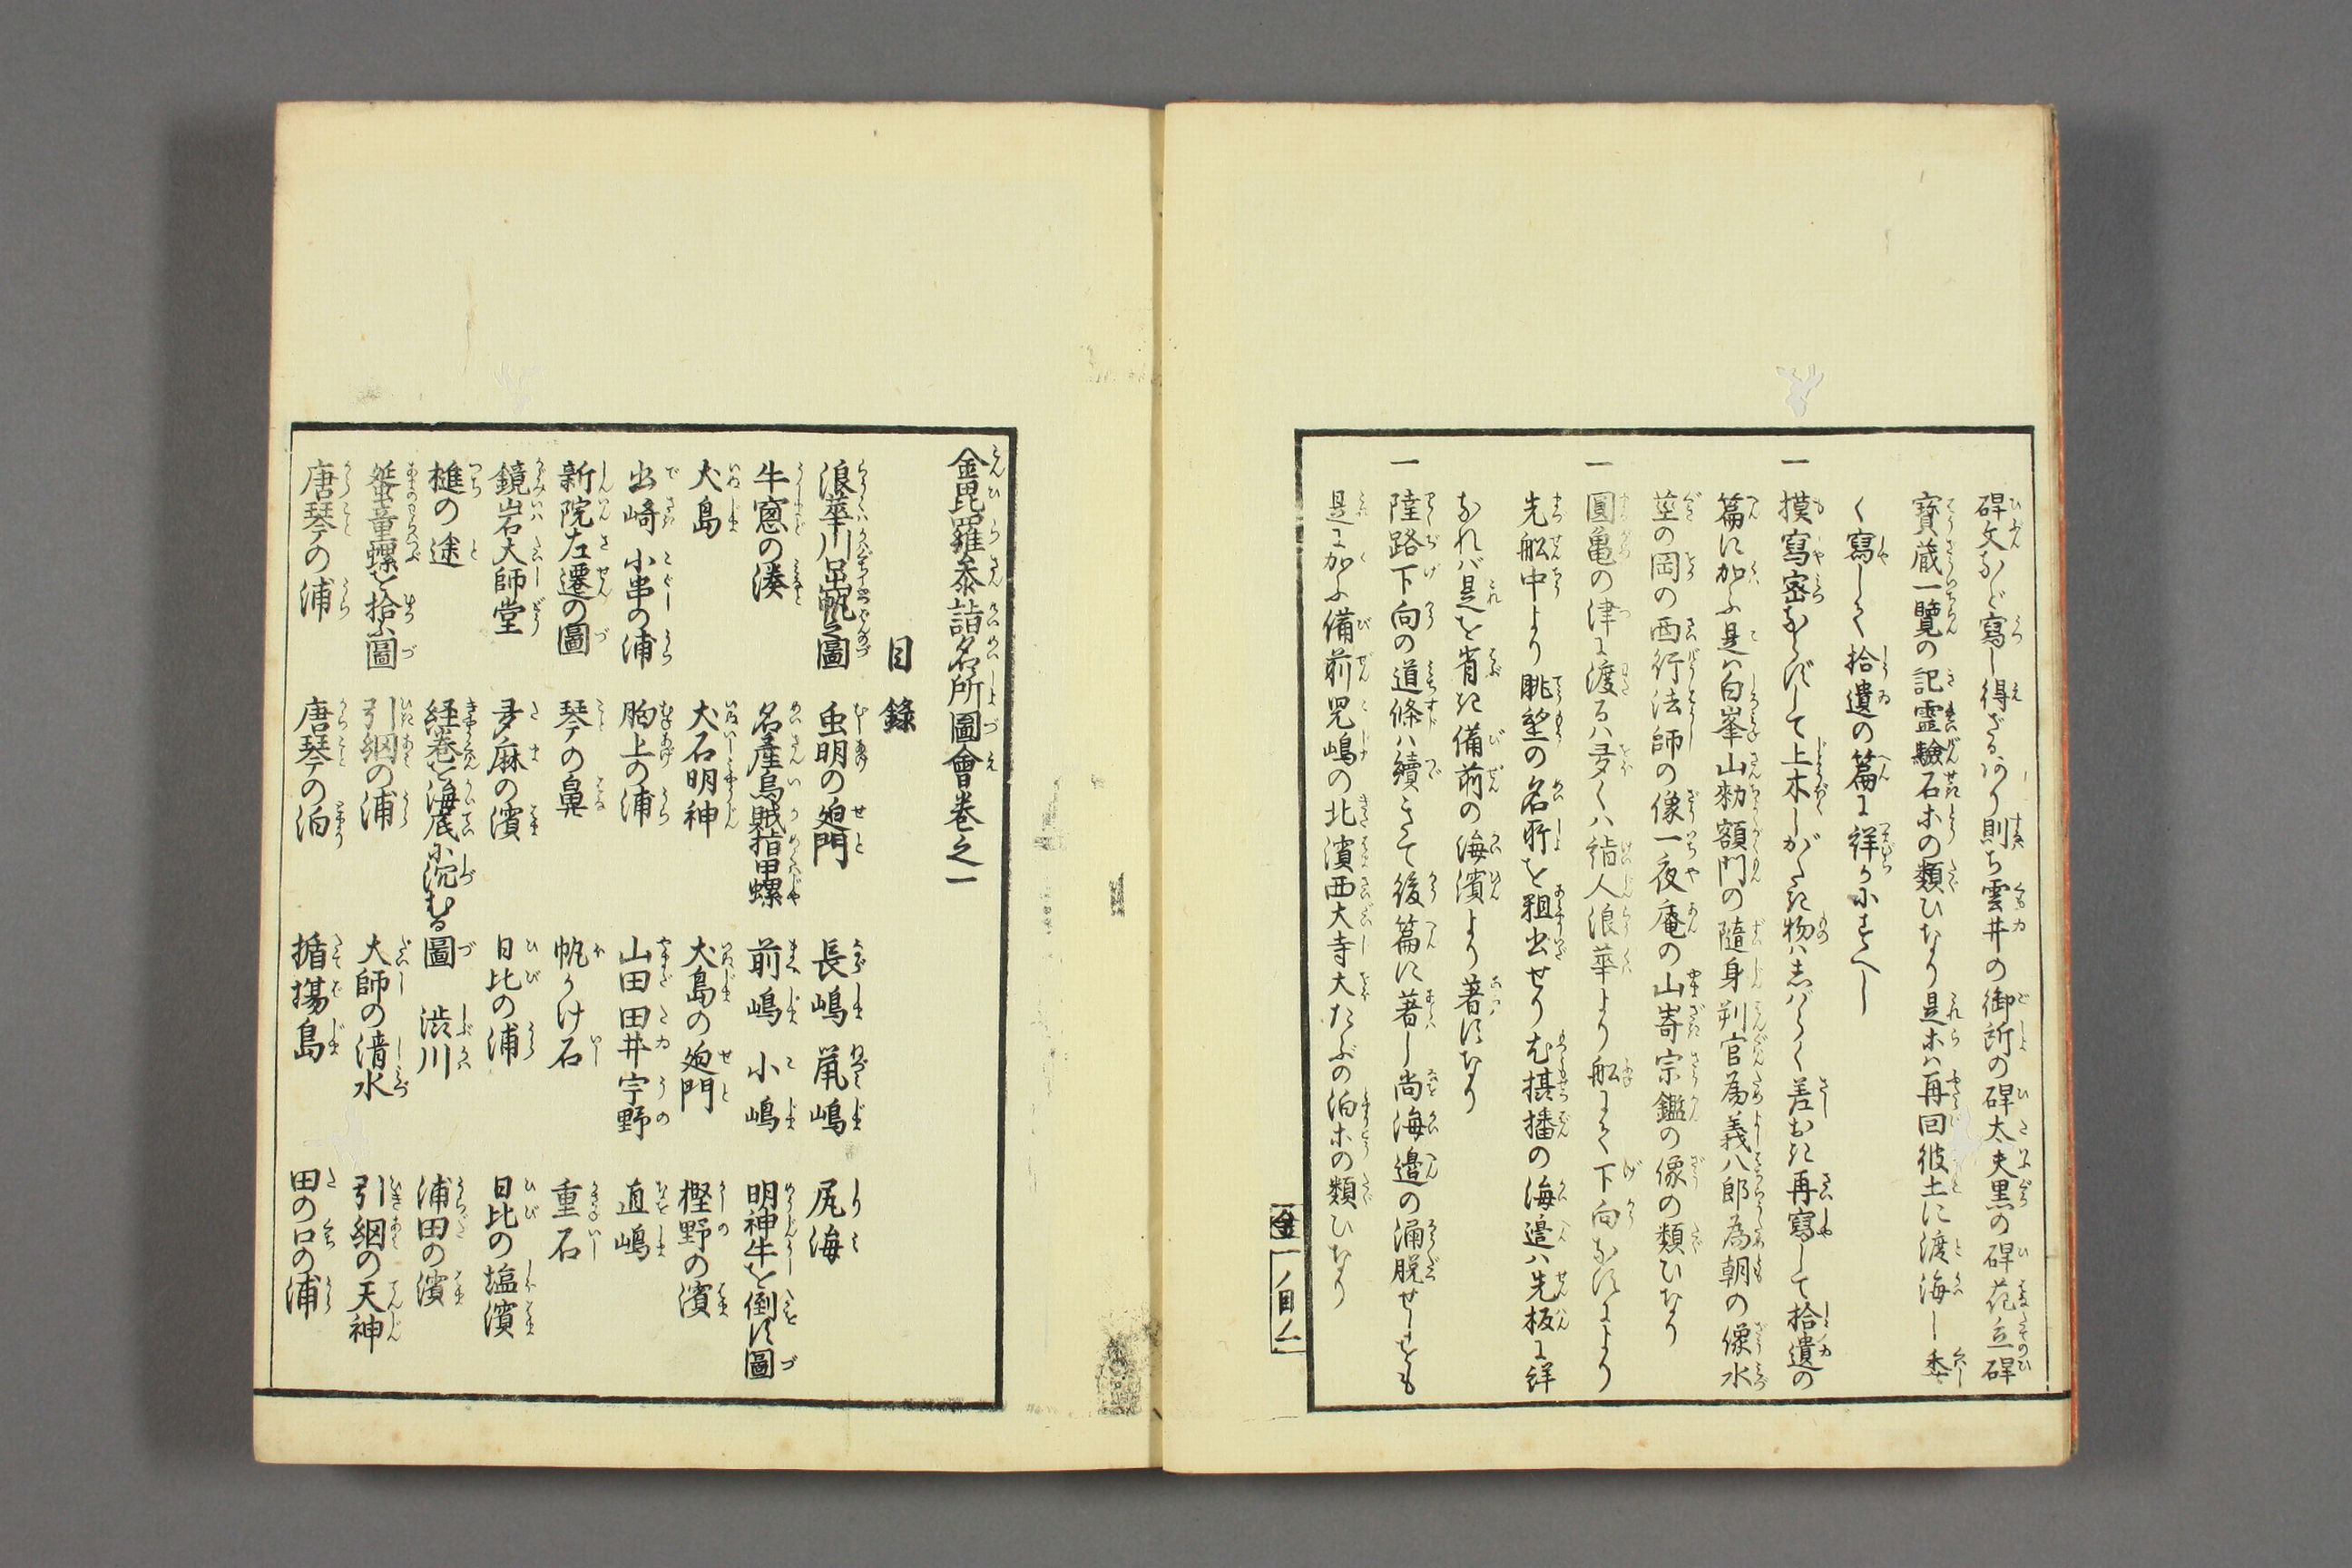 碑文など寫し得ざるあり則ち雲井の御所の碑太夫黒の碑花立碑
寳蔵一覽の記霊驗石ホの類ひなり是ホハ再回彼土に渡海し委
く寫して拾遺の篇に詳かにすべし
一 摸寫密ならずして上木しがたき物ハ志ばらく差おき再寫して拾遺の
篇に加ふ是ハ白峯山勅額門の隨身判官為義八郎為朝の像水
莖の岡の西行法師の像一夜庵の山嵜宗鑑の像の類ひなり
一 圓亀の津に渡るハ多くハ詣人浪華より舩にて下向なすにより
先舩中より眺望の名所を粗出せり尤摂播の海邉ハ先板に詳
なれバ是を省き備前の海濱より著すなり
一 陸路下向の道條ハ續きて後篇に著し尚海邉の涌脱せしをも
是に加ふ備前児嶋の北濱西大寺大たぶの泊ホの類ひなり
金一ノ目ノ二
金毘羅参詣名所圖會巻之一
目録
浪華川口出帆之圖 虫明の廹門 長嶋 鼠嶋 尻海
牛窓の湊 名産烏賊指甲螺 前嶋 小嶋 明神牛を倒す圖
犬島 犬石明神 犬島の廹門 樫野の濱
出崎 小串の浦 胸上の浦 山田 田井 宇野 直嶋
新院左遷の圖 琴の鼻 帆かけ石 重石
鏡岩大師堂 多麻の濱 日比の浦 日比の塩濱
槌の途 経巻を海底に沉むる圖 渋川 浦田の濱
蜑童螺を拾ふ圖 引網の浦 大師の清水 引網の天神
唐琴の浦 唐琴の泊 楯塲島 田の口の浦